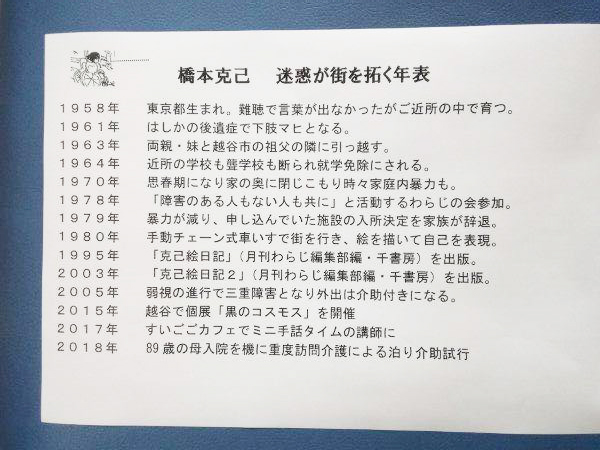 橋本克己　迷惑が街を拓く年表
１９５８年　東京都生まれ。難聴で言葉が出なかったがご近所の中で育つ。
１９６１年　はしかの後遺症で下肢マヒとなる。
１９６３年　両親・妹と越谷市の祖父の隣に引っ越す。
１９６４年　近所の学校も聾学校も断られ就学免除にされる。
１９７０年　思春期になり家の奥に閉じこもり時々家庭内暴力も。
１９７８年　「障害のある人もない人も共に」と活動するわらじの会参加。
１９７９年　暴力が減り、申し込んでいた施設の入所決定を家族が辞退。
１９８０年　手動チェーン式車いすで街を行き、絵を描いて自己を表現。
１９９５年　「克己絵日記」（月刊わらじ編集部編・千書房）を出版。
２００３年　「克己絵日記２」（月刊わらじ編集部編・千書房）を出版。
２００５年　弱視の進行で三重障害となり外出は介助付きになる。
２０１５年　越谷で個展「黒のコスモス」を開催
２０１７年　すいごごカフェでミニ手話タイムの講師に
２０１８年　89歳の母入院を機に重度訪問介護による泊り介助試行